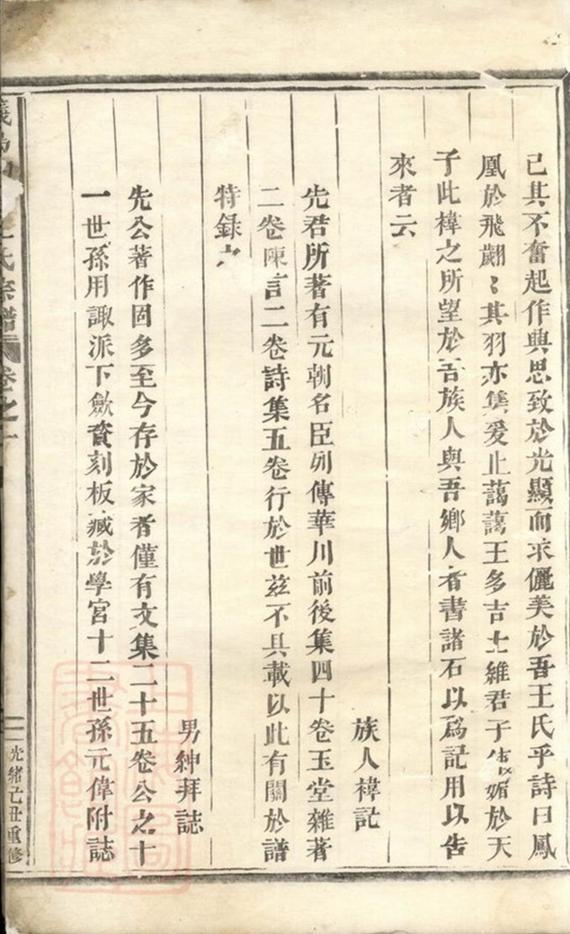 己其不奮起作興思致於光顯而求儷美於吾王氏乎詩曰鳳
凰於飛翽〻其羽亦集爰止藹藹王多吉士維君子使媚於天
子此褘之所望於吾族人與吾鄉人者書諸石以為記用以告
來者云
族人褘記
先君所著有元朝名臣列傳華川前後集四十卷玉堂雜著
二卷陳言二卷詩集五卷行於世茲不具載以此有關於譜
特錄之
男紳拜誌
先公著作固多至今存於家者僅有文集二十五卷公之十
一世孫用諏派下歛貲刻板藏於學宮十二世孫元偉附誌
氏宗譜 卷之一
光緒己丑重修